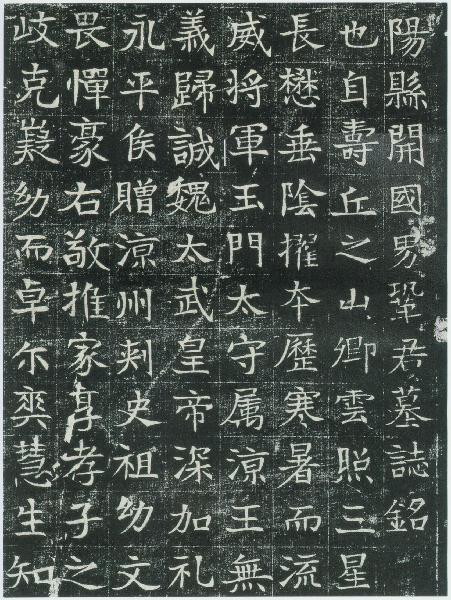 陽縣開國男鞏君墓誌銘
也自壽丘之山卿雲照三星
長懋垂陰擢本歷寒暑而流
威将軍玉門太守属涼王無
義歸誠魏太武皇帝深加礼
永平侯贈涼州刺史祖幼文
畏憚豪右敬推家享孝子之
歧克嶷幼而卓尒奕慧生知